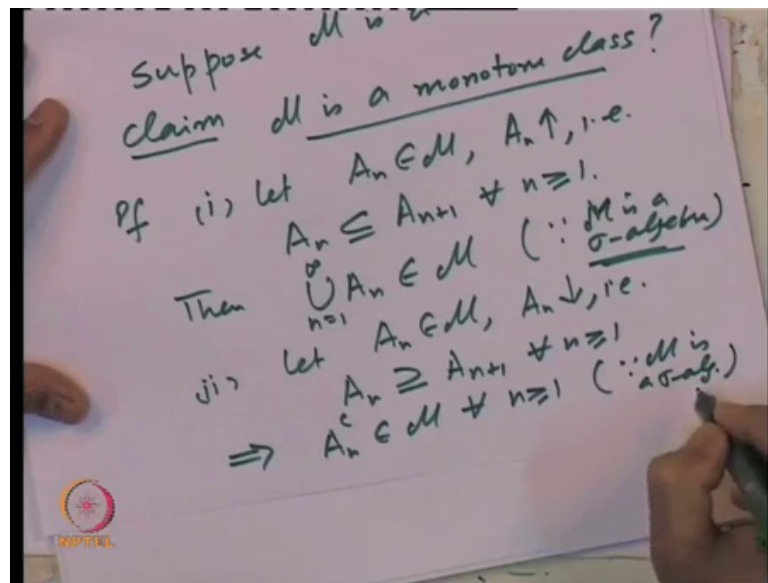 Suppose M is a
claim M is a monotone class?
Pf (i) Let Aₙ ∈ M, Aₙ ↑, i.e.
Aₙ ⊆ Aₙ₊₁ ∀ n ≥ 1.
Then ⋃ₙ₌₁^∞ Aₙ ∈ M (∵ M is a σ-algebra)
(ii) Let Aₙ ∈ M, Aₙ ↓, i.e.
Aₙ ⊇ Aₙ₊₁ ∀ n ≥ 1
⇒ Aₙᶜ ∈ M ∀ n ≥ 1 (∵ M is a σ-alg.)
NPTEL